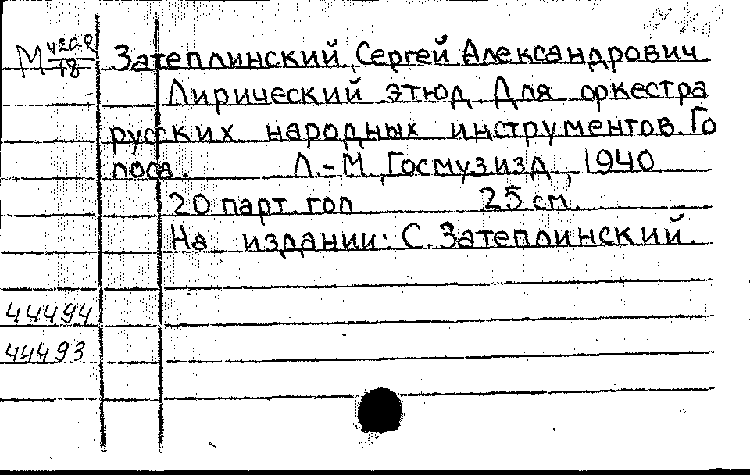 М 420.2/18 Затеплинский Сергей Александрович
Лирический этюд. Для оркестра
русских народных инструментов. Го
лоса. Л.-М., Госмузизд, 1940
20 парт. гол 25 см.
На издании: С. Затеплинский.
44494
44493